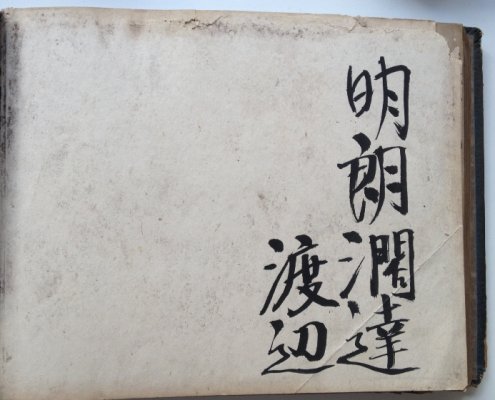 明朗濶達
渡辺